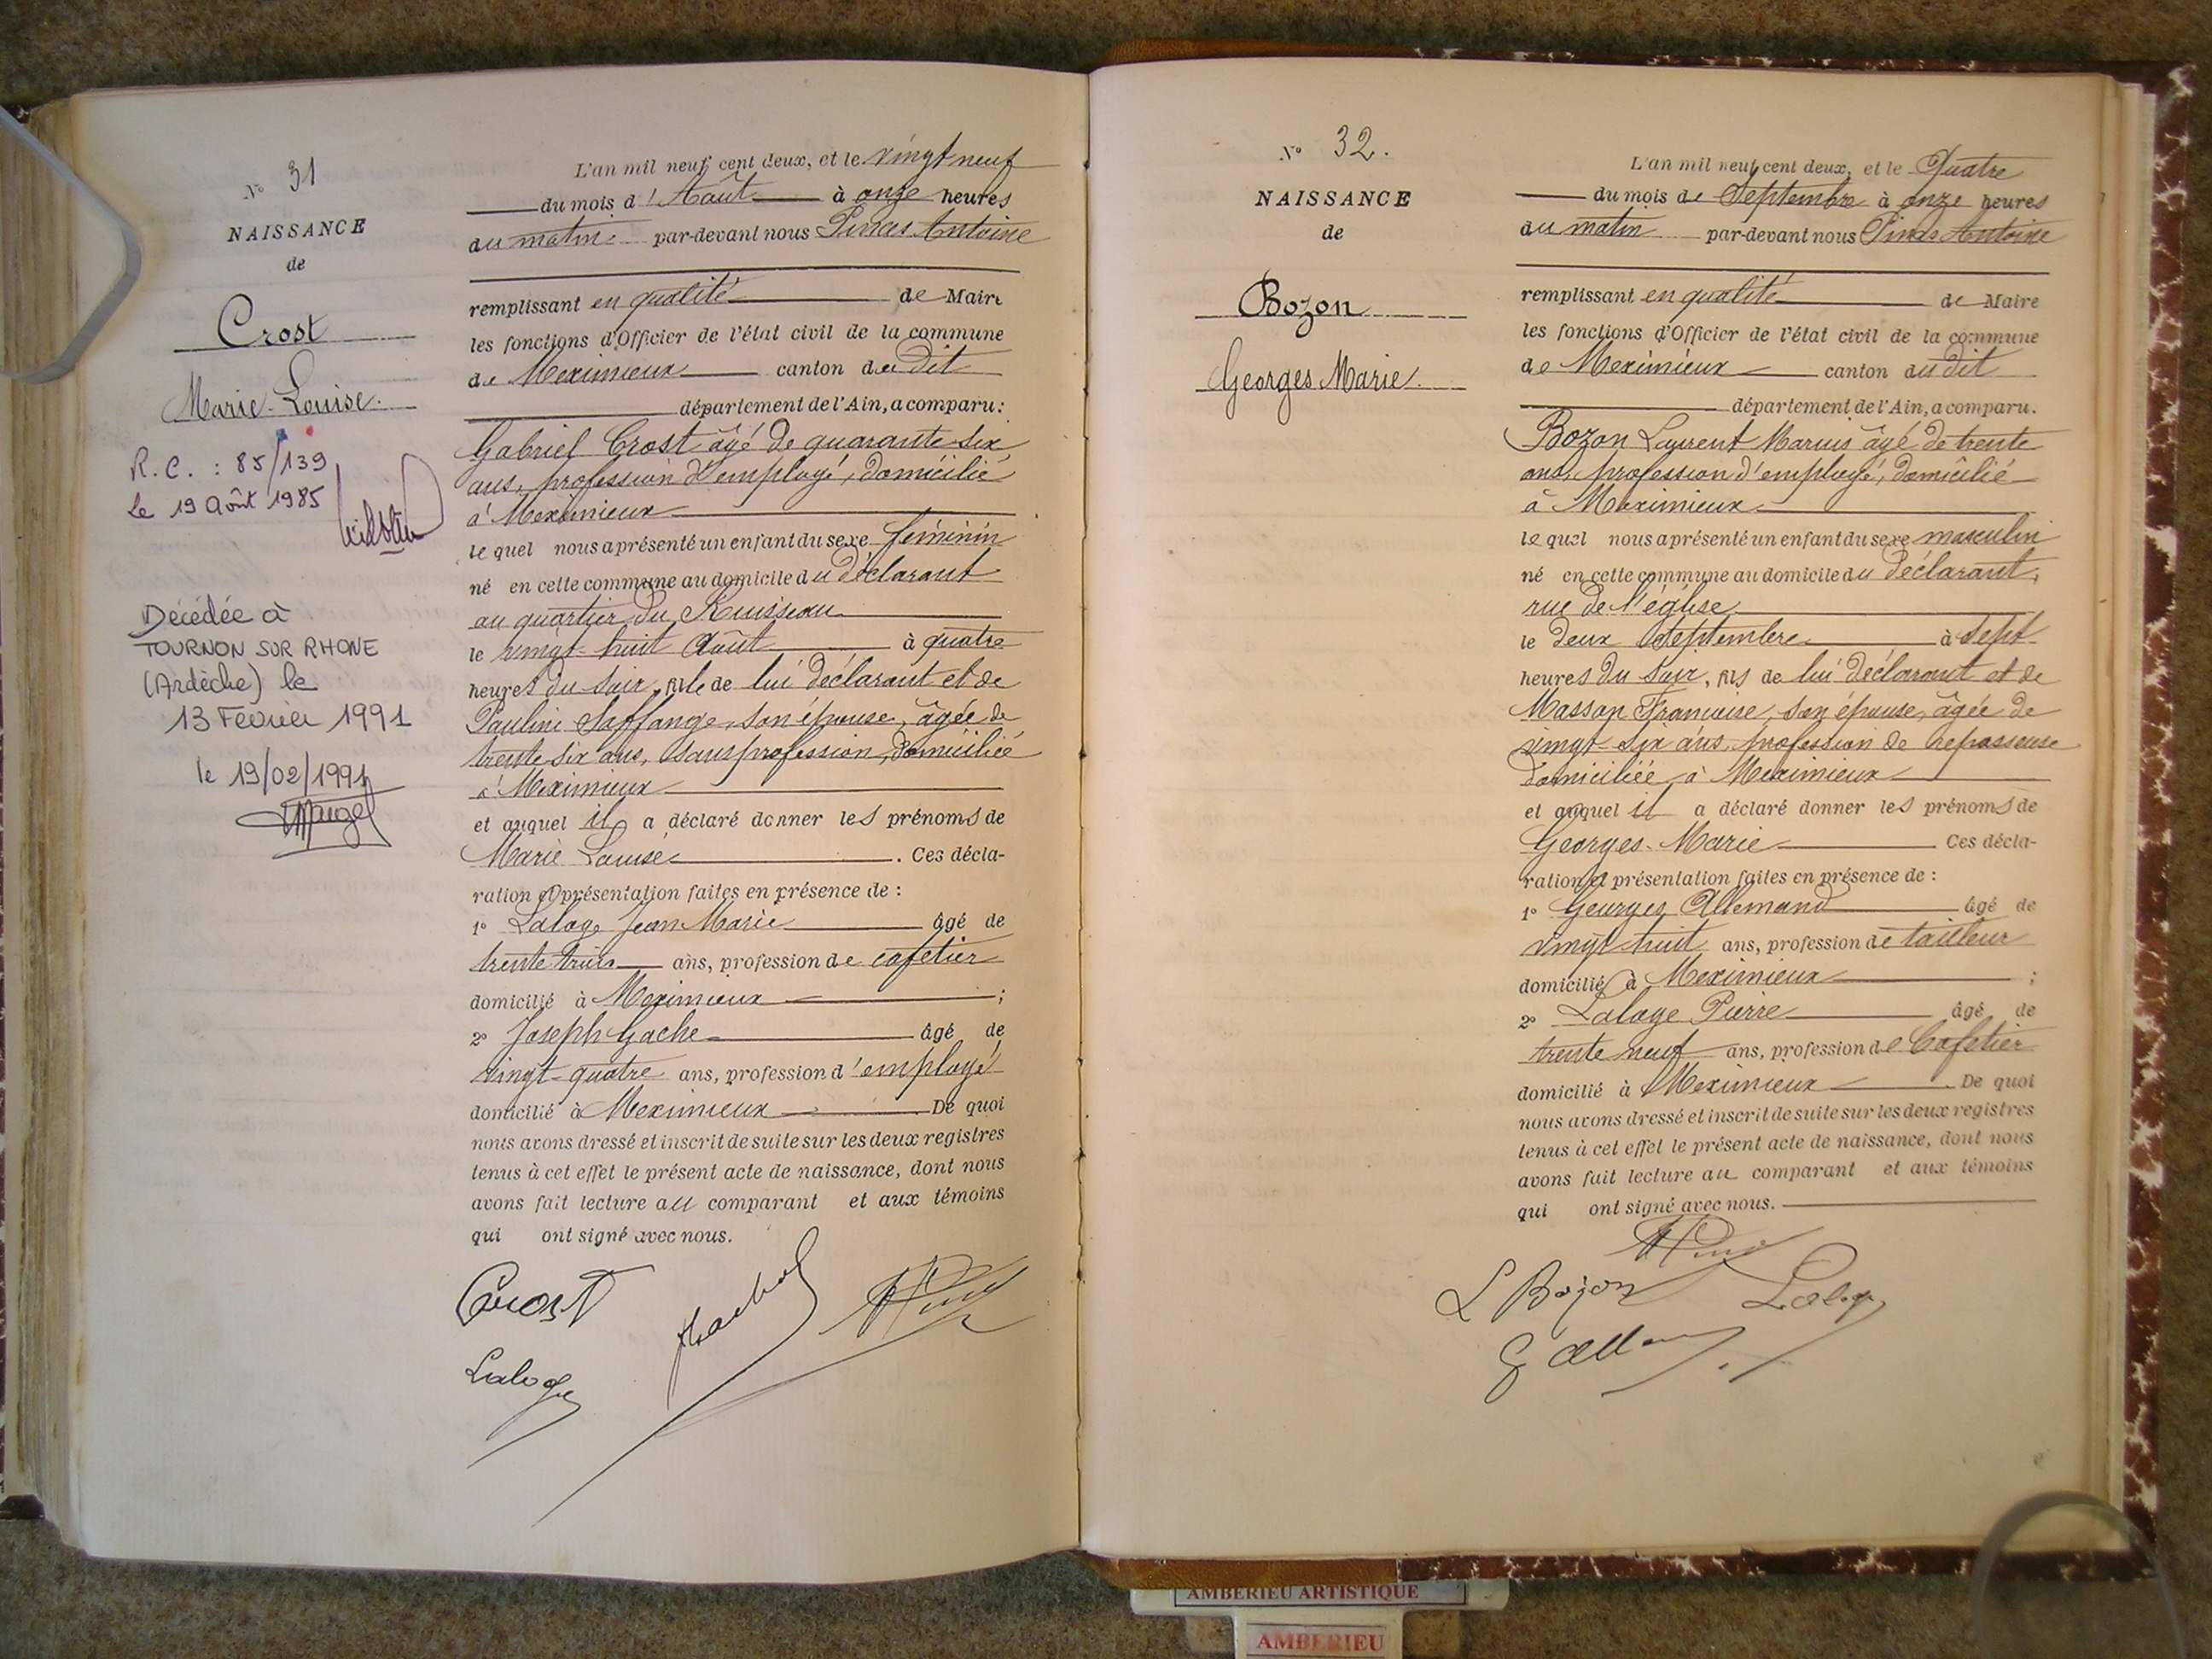 N° 31
NAISSANCE
de
Crost
Marie-Louise.
R.C. : 85/139
le 19 Août 1985
Décédée à
TOURNON SUR RHONE
(Ardèche) le
13 Février 1991
le 19/02/1991
L'an mil neuf cent deux, et le vingt neuf
du mois d'Août à onze heures
du matin par-devant nous Antoine
remplissant en qualité de Maire
les fonctions d'Officier de l'état civil de la commune
de Meximieux canton du dit
département de l'Ain, a comparu :
Gabriel Crost âgé de quarante six
ans, profession d'employé, domicilié
à Meximieux
lequel nous a présenté un enfant du sexe féminin
né en cette commune au domicile du déclarant
au quartier du Ruisseau
le vingt-huit Août à quatre
heures du soir, fille de lui déclarant et de
Pauline Saffange, son épouse, âgée de
trente six ans, sans profession, domiciliée
à Meximieux
et auquel il a déclaré donner les prénoms de
Marie Louise. Ces décla-
ration et présentation faites en présence de :
1° Laloge Jean Marie âgé de
trente trois ans, profession de cafetier
domicilié à Meximieux ;
2° Joseph Gache âgé de
vingt-quatre ans, profession d'employé
domicilié à Meximieux De quoi
nous avons dressé et inscrit de suite sur les deux registres
tenus à cet effet le présent acte de naissance, dont nous
avons fait lecture au comparant et aux témoins
qui ont signé avec nous.
Crost
Laloge
N° 32.
NAISSANCE
de
Bozon
Georges Marie.
L'an mil neuf cent deux, et le Quatre
du mois de Septembre à onze heures
du matin par-devant nous Antoine
remplissant en qualité de Maire
les fonctions d'Officier de l'état civil de la commune
de Meximieux canton du dit
département de l'Ain, a comparu.
Bozon Laurent Marius âgé de trente
ans, profession d'employé, domicilié
à Meximieux
lequel nous a présenté un enfant du sexe masculin
né en cette commune au domicile du déclarant,
rue de l'église
le deux Septembre à sept
heures du soir, fils de lui déclarant et de
Masson Françoise, son épouse, âgée de
vingt-six ans, profession de repasseuse
domiciliée à Meximieux
et auquel il a déclaré donner les prénoms de
Georges-Marie Ces décla-
ration et présentation faites en présence de :
1° Georges Allemand âgé de
vingt huit ans, profession de tailleur
domicilié à Meximieux ;
2° Laloge Pierre âgé de
trente neuf ans, profession de Cafetier
domicilié à Meximieux De quoi
nous avons dressé et inscrit de suite sur les deux registres
tenus à cet effet le présent acte de naissance, dont nous
avons fait lecture au comparant et aux témoins
qui ont signé avec nous.
L Bozon Laloge
AMBERIEU ARTISTIQUE
AMBERIEU